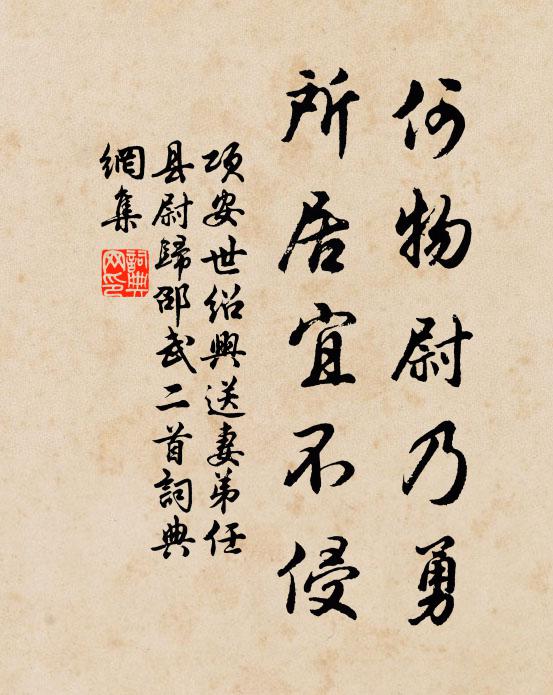 何物尉乃勇
所居宜不侵
项安世绍興送妻弟任
县尉歸邵武二首詞典
網集
詞典網印